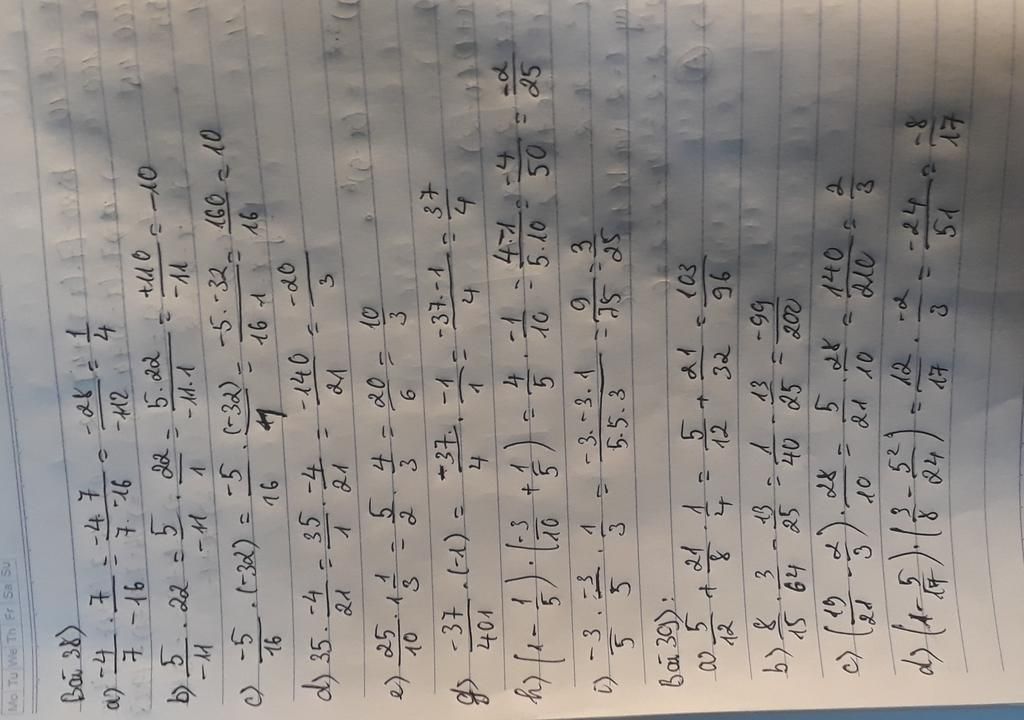 Mo Tu We Th Fr Sa Su
Bài 38)
a) -4/7 . 7/-16 = -4.7/7.-16 = -28/-112 = 1/4
b) 5/-11 . 22 = 5/-11 . 22/1 = 5.22/-11.1 = +110/-11 = -10
c) -5/16 . (-32) = -5/16 . (-32)/1 = -5.-32/16 1 = 160/16 = 10
d) 35 . -4/21 = 35/1 . -4/21 = -140/21 = -20/3
e) 25/10 . 1 1/3 = 5/2 . 4/3 = 20/6 = 10/3
g) -37/401 . (-1) = -37/4 . -1/1 = -37.-1/4 = 37/4
h) (1 - 1/5) . (-3/10 + 1/5) = 4/5 . -1/10 = 4.-1/5.10 = -4/50 = -2/25
i) -3/5 . -3/5 . 1/3 = -3.-3.1/5.5.3 = 9/75 = 3/25
Bài 39):
a) 5/12 + 21/8 . 1/4 = 5/12 + 21/32 = 103/96
b) 8/15 . 3/64 - 13/25 = 1/40 - 13/25 = -99/200
c) (19/21 - 2/3) . 28/10 = 5/21 . 28/10 = 140/210 = 2/3
d) (1 - 5/17) . (3/8 - 5²/24) = 12/17 . -2/3 = -24/51 = -8/17